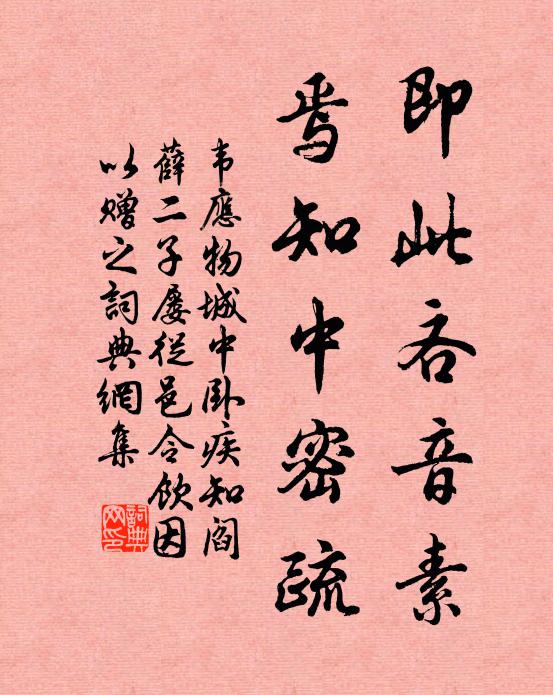 即此吝音素
焉知中密疏
韦應物城中卧疾知阎
薛二子屡從邑令飲因
以贈之詞典網集
詞典
网印